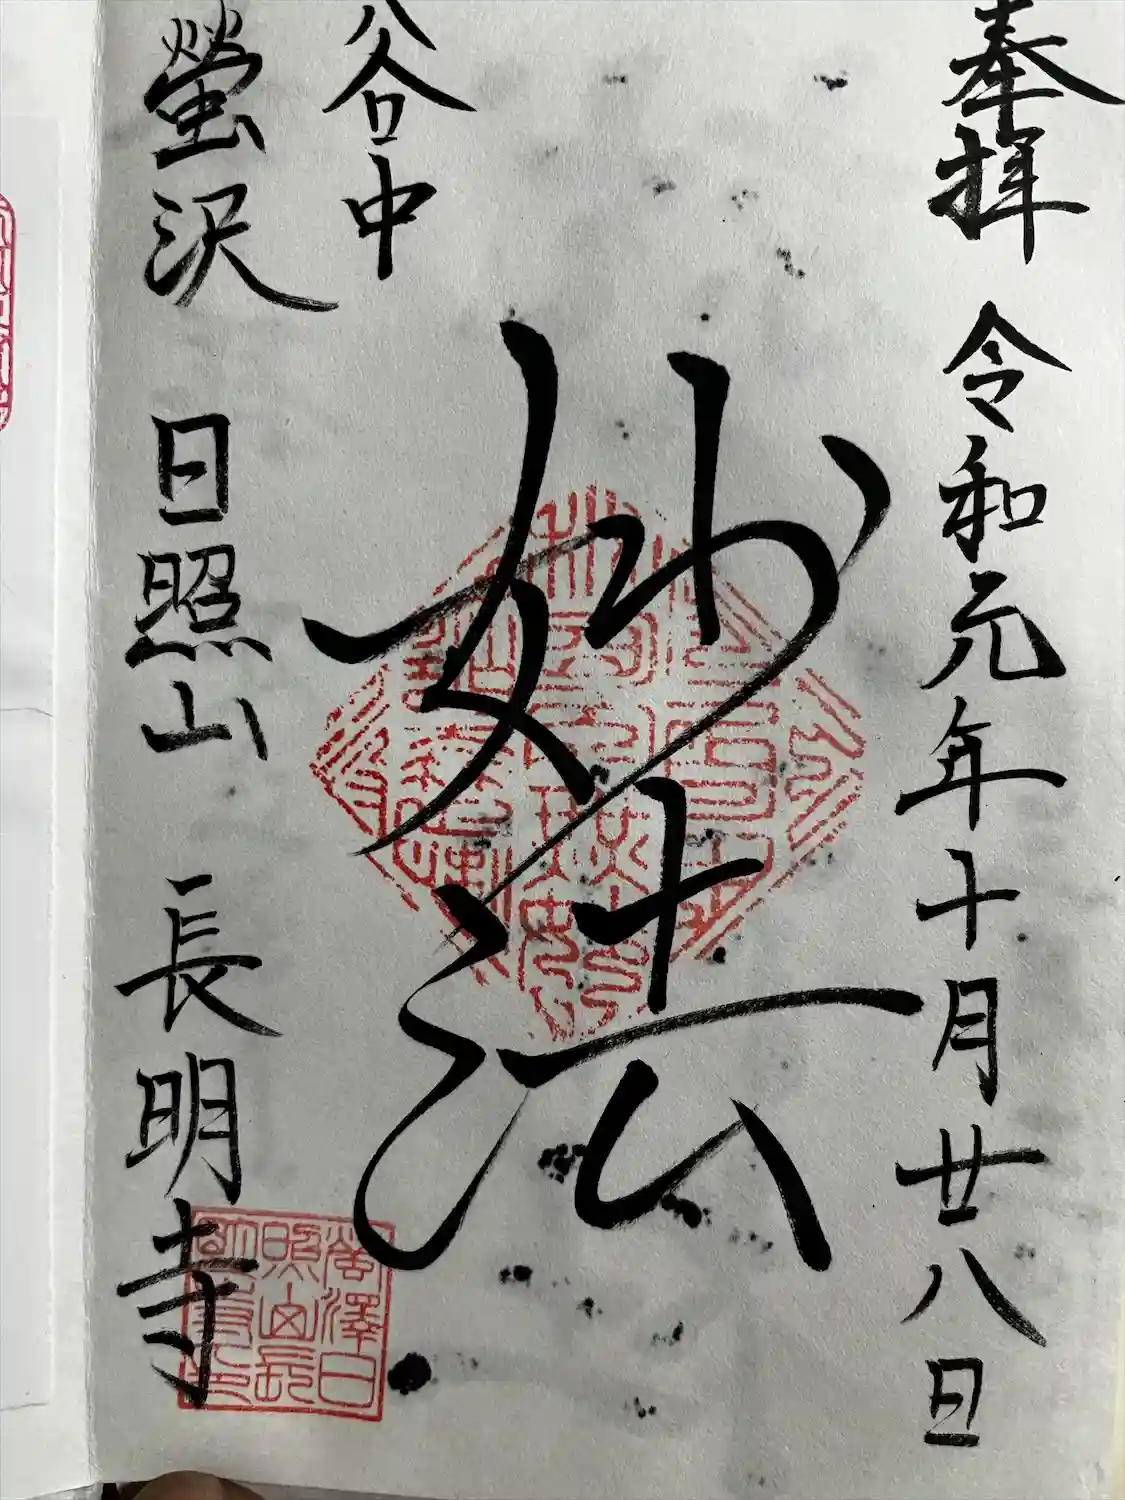 奉拝 令和元年十月廿八日
妙法
谷中
螢沢 日照山 長明寺